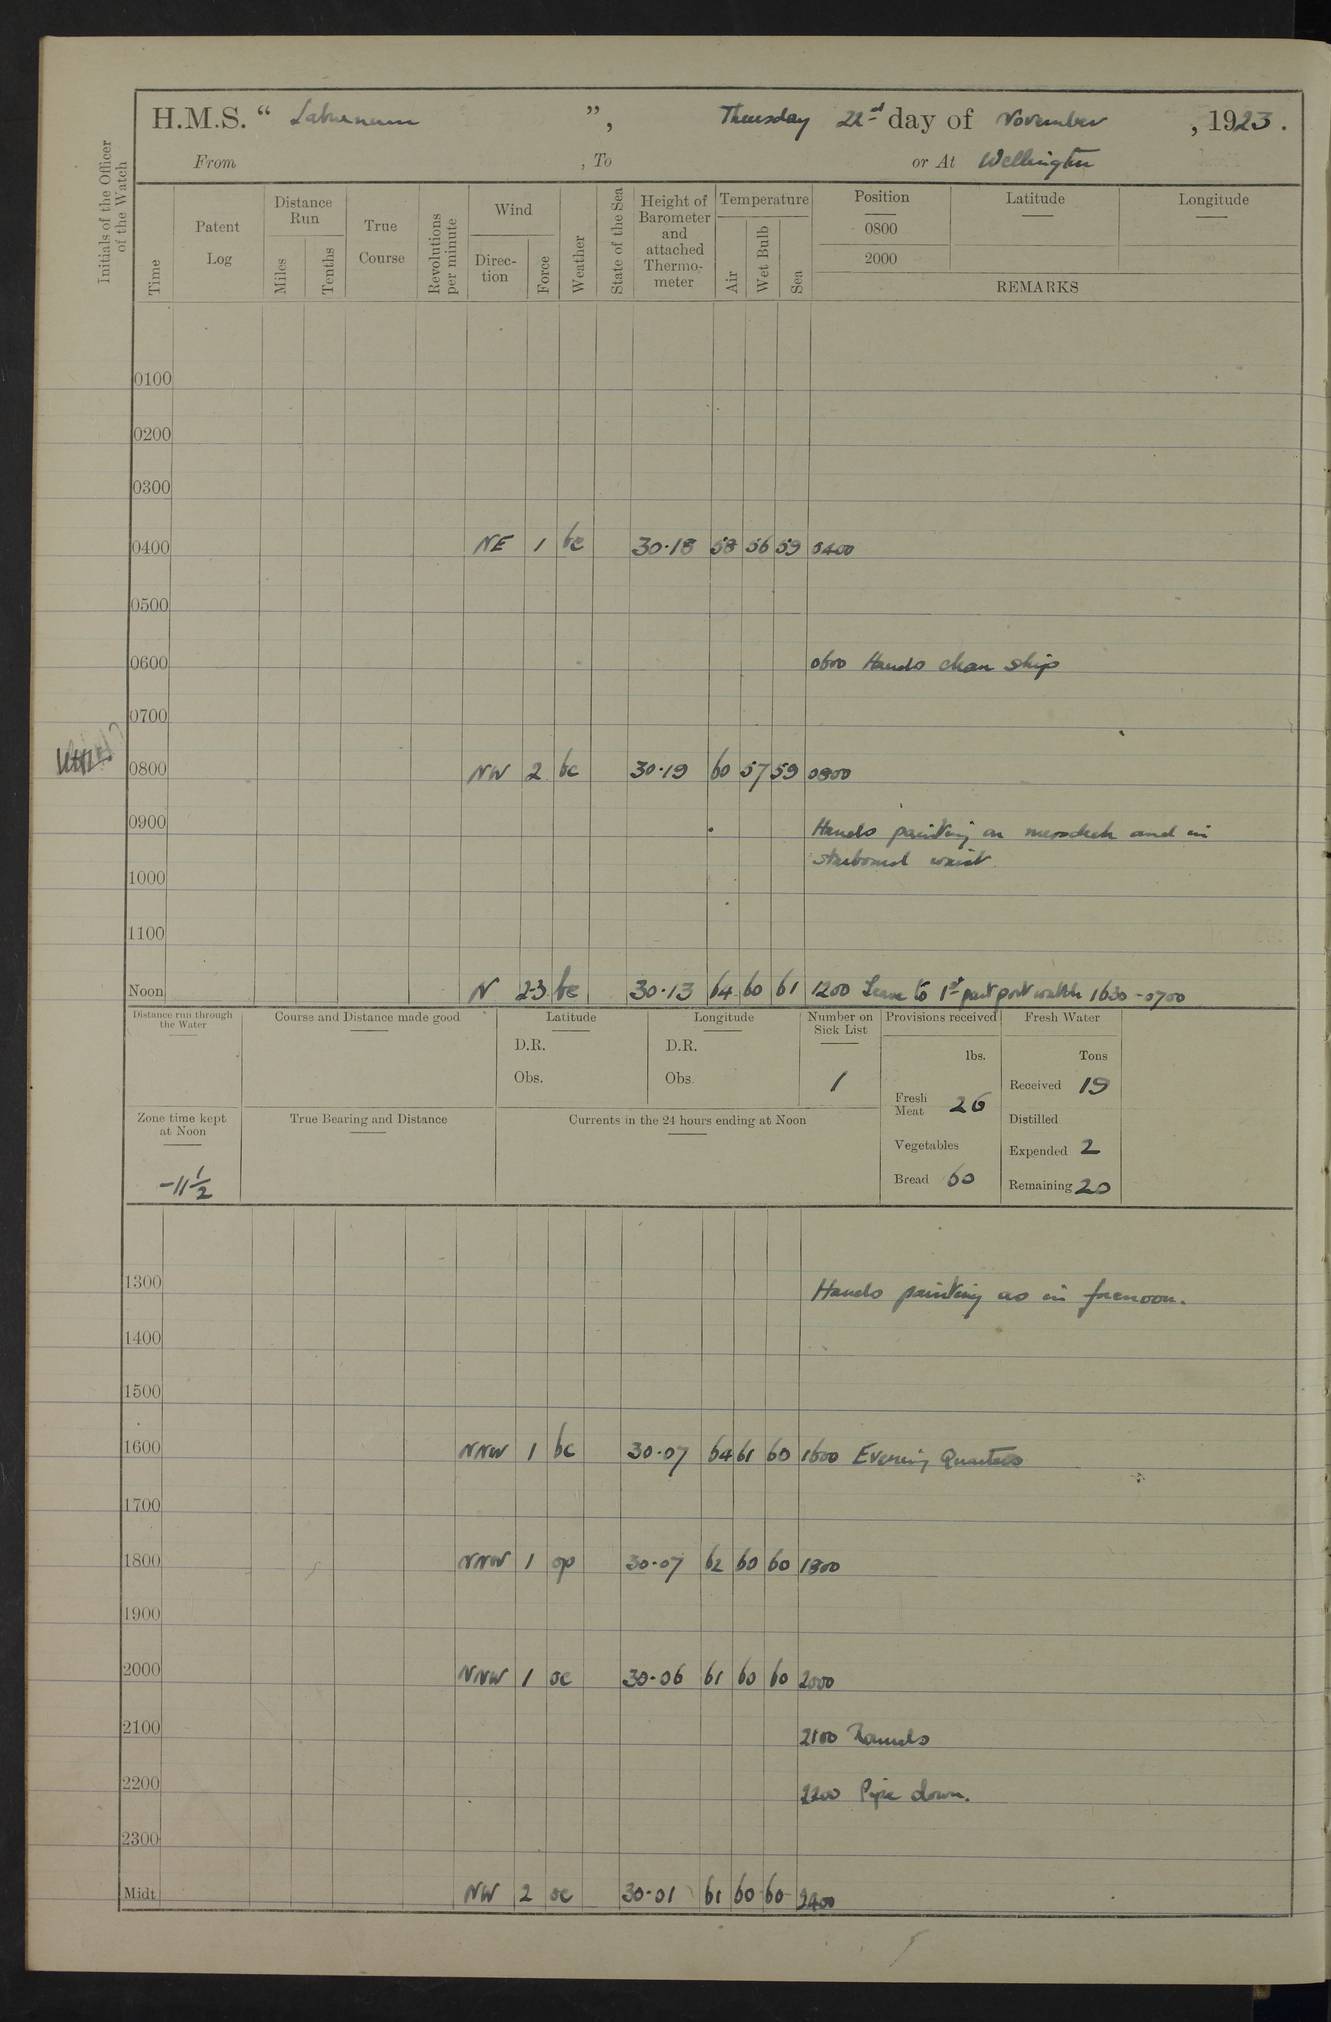 H.M.S. “ Laburnum ”, Thursday 22nd day of November, 1923.
From , To or At Wellington
Initials of the Officer of the Watch
Time
Patent Log
Distance Run
Miles
Tenths
True Course
Revolutions per minute
Wind
Direction
Force
Weather
State of the Sea
Height of Barometer and attached Thermometer
Temperature
Air
Wet Bulb
Sea
Position Latitude Longitude
0800
2000
REMARKS
0100
0200
0300
0400 NE 1 bc 30·18 58 56 59 0400
0500
0600 0600 Hands clean ship
0700
0800 NW 2 bc 30·19 60 57 59 0800
0900 Hands painting on messdeck and in
starboard waist
1000
1100
Noon N 2-3 bc 30·13 64 60 61 1200 Leave to 1st part port watch 1630-0700
Distance run through the Water
Course and Distance made good
Latitude
D.R.
Obs.
Longitude
D.R.
Obs.
Number on Sick List
1
Provisions received
lbs.
Fresh Meat 26
Vegetables
Bread 60
Fresh Water
Tons
Received 19
Distilled
Expended 2
Remaining 20
Zone time kept at Noon
-11 1/2
True Bearing and Distance
Currents in the 24 hours ending at Noon
1300 Hands painting as in forenoon.
1400
1500
1600 NNW 1 bc 30·07 64 61 60 1600 Evening Quarters
1700
1800 NNW 1 op 30·07 62 60 60 1800
1900
2000 NNW 1 oc 30·06 61 60 60 2000
2100 2100 Rounds
2200 2200 Pipe down.
2300
Midt. NW 2 oc 30·01 61 60 60 2400